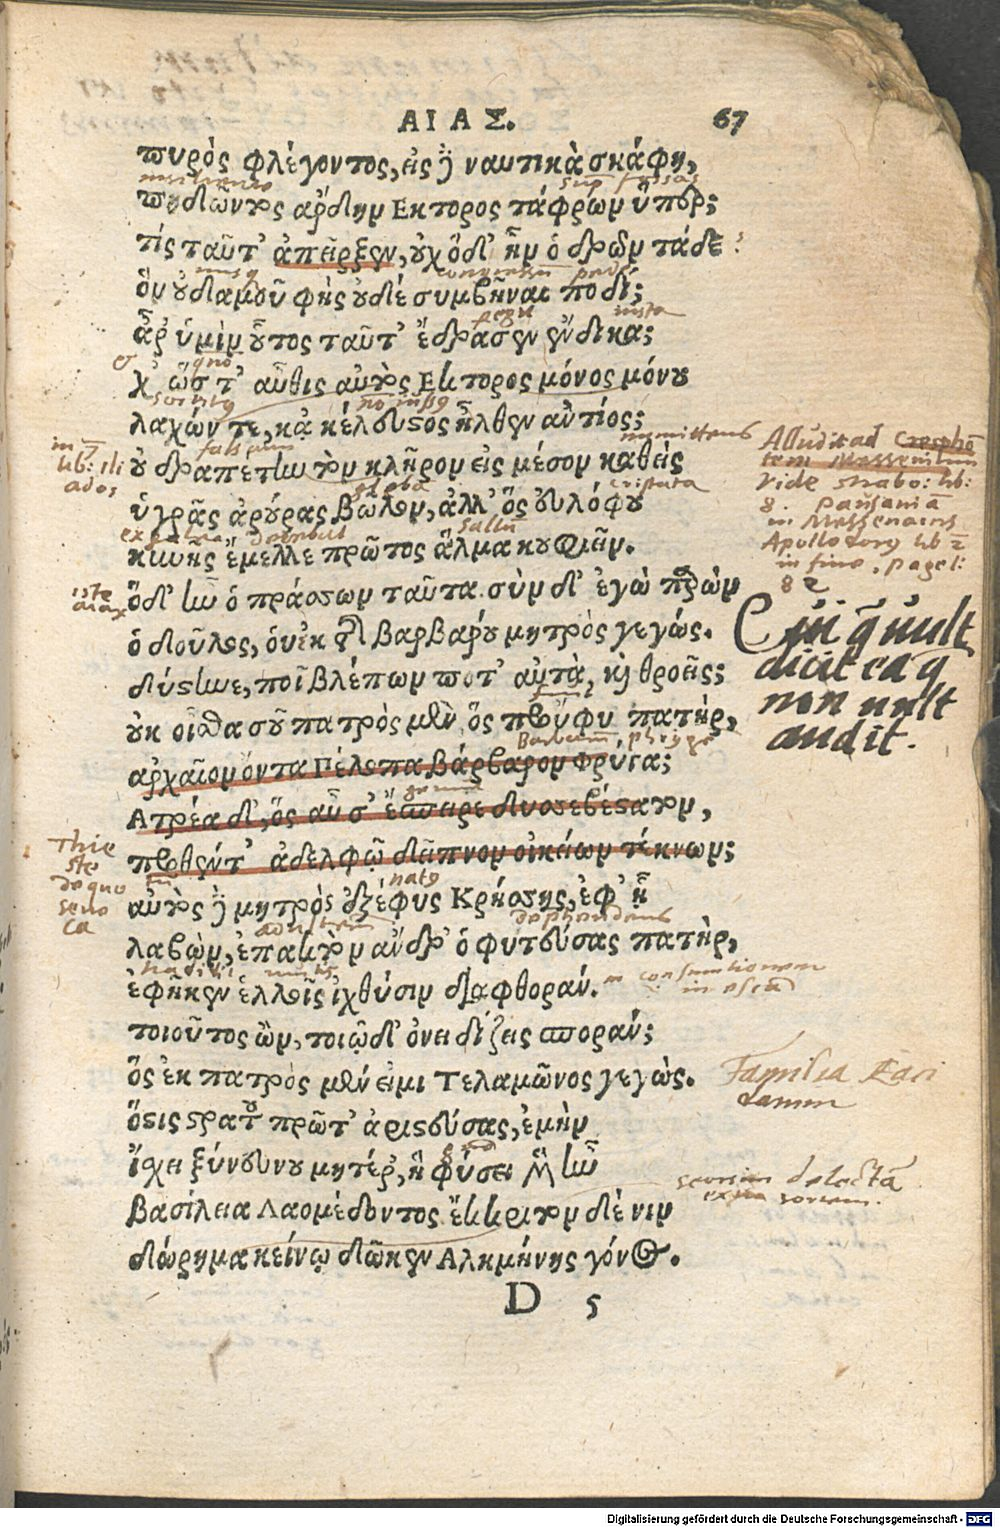 ΑΙΑΣ.
67
πυρὸς φλέγοντος, εἰς δὲ ναυτικὰ σκάφη,
πηδῶντος ἄρδην Εκτορος τάφρων ὕπερ;
τίς ταῦτ' ἀπεῖρξεν, οὐχ ὅδ' ἦν ὁ δρῶν τάδε;
ὃν οὐδαμοῦ φῂς οὐδὲ συμβῆναι ποδί;
ἆρ' ὑμὶν οὗτος ταῦτ' ἔδρασεν ἔνδικα;
χ' ὥς τ' αὖθις αὐτὸς Εκτορος μόνος μόνου
λαχών τε, κᾀκέλευστος ἦλθεν ἀντίος;
οὐ δραπέτην τὸν κλῆρον εἰς μέσον καθεὶς
ὑγρᾶς ἀρούρας βῶλον, ἀλλ' ὃς εὐλόφου
κυνῆς ἔμελλε πρῶτος ἅλμα κουφιεῖν.
ὅδ' ἦν ὁ πράσσων ταῦτα. σὺν δ' ἐγὼ παρὼν
ὁ δοῦλος, ὁυκ τῆς βαρβάρου μητρὸς γεγώς.
δύστηνε, ποῖ βλέπων ποτ' αὐτὰ, καὶ θροεῖς;
οὐκ οἶσθα σοῦ πατρὸς μὲν ὃς προὔφυ πατὴρ,
ἀρχαῖον ὄντα Πέλοπα βάρβαρον Φρύγα;
Ατρέα δ', ὃς αὖ σ' ἔσπειρε δυσσεβέστατον,
προθέντ' ἀδελφῷ δεῖπνον οἰκείων τέκνων;
αὐτὸς δὲ μητρὸς ἐξέφυς Κρήσσης, ἐφ' ᾗ
λαβὼν, ἐπακτὸν ἄνδρ' ὁ φυτεύσας πατὴρ,
ἐφῆκεν ἑλλοῖς ἰχθύσιν διαφθοράν.
τοιοῦτος ὢν, τοιῷδ' ὀνειδίζεις σποράν;
ὃς ἐκ πατρὸς μέν εἰμι Τελαμῶνος γεγὼς.
ὅστις στρατοῦ πρῶτ' ἀριστεύσας, ἐμὴν
ἴσχει ξύνευνον μητέρ', ἣ φύσει μὲν ἦν
βασίλεια Λαομέδοντος. ἔκκριτον δέ νιν
δώρημα κείνῳ δῶκεν Αλκμήνης γόνος.
D 5
in 7
lib: ili
ados
iste
aiax
Thie
ste
de quo
sene
ca
Alludit ad Cresphō
tem Messenium
Vide strabo: lib:
8. pausaniā
in Messenaicis
Apollodorū lib 2
in fine, pagel:
82
Cui q̄ uult
dicit ea q̄
non uult
audit.
consumtionem
in escā
Familia Eaci
darum
seorsim delectā
extra sortem.
Digitalisierung gefördert durch die Deutsche Forschungsgemeinschaft - DFG